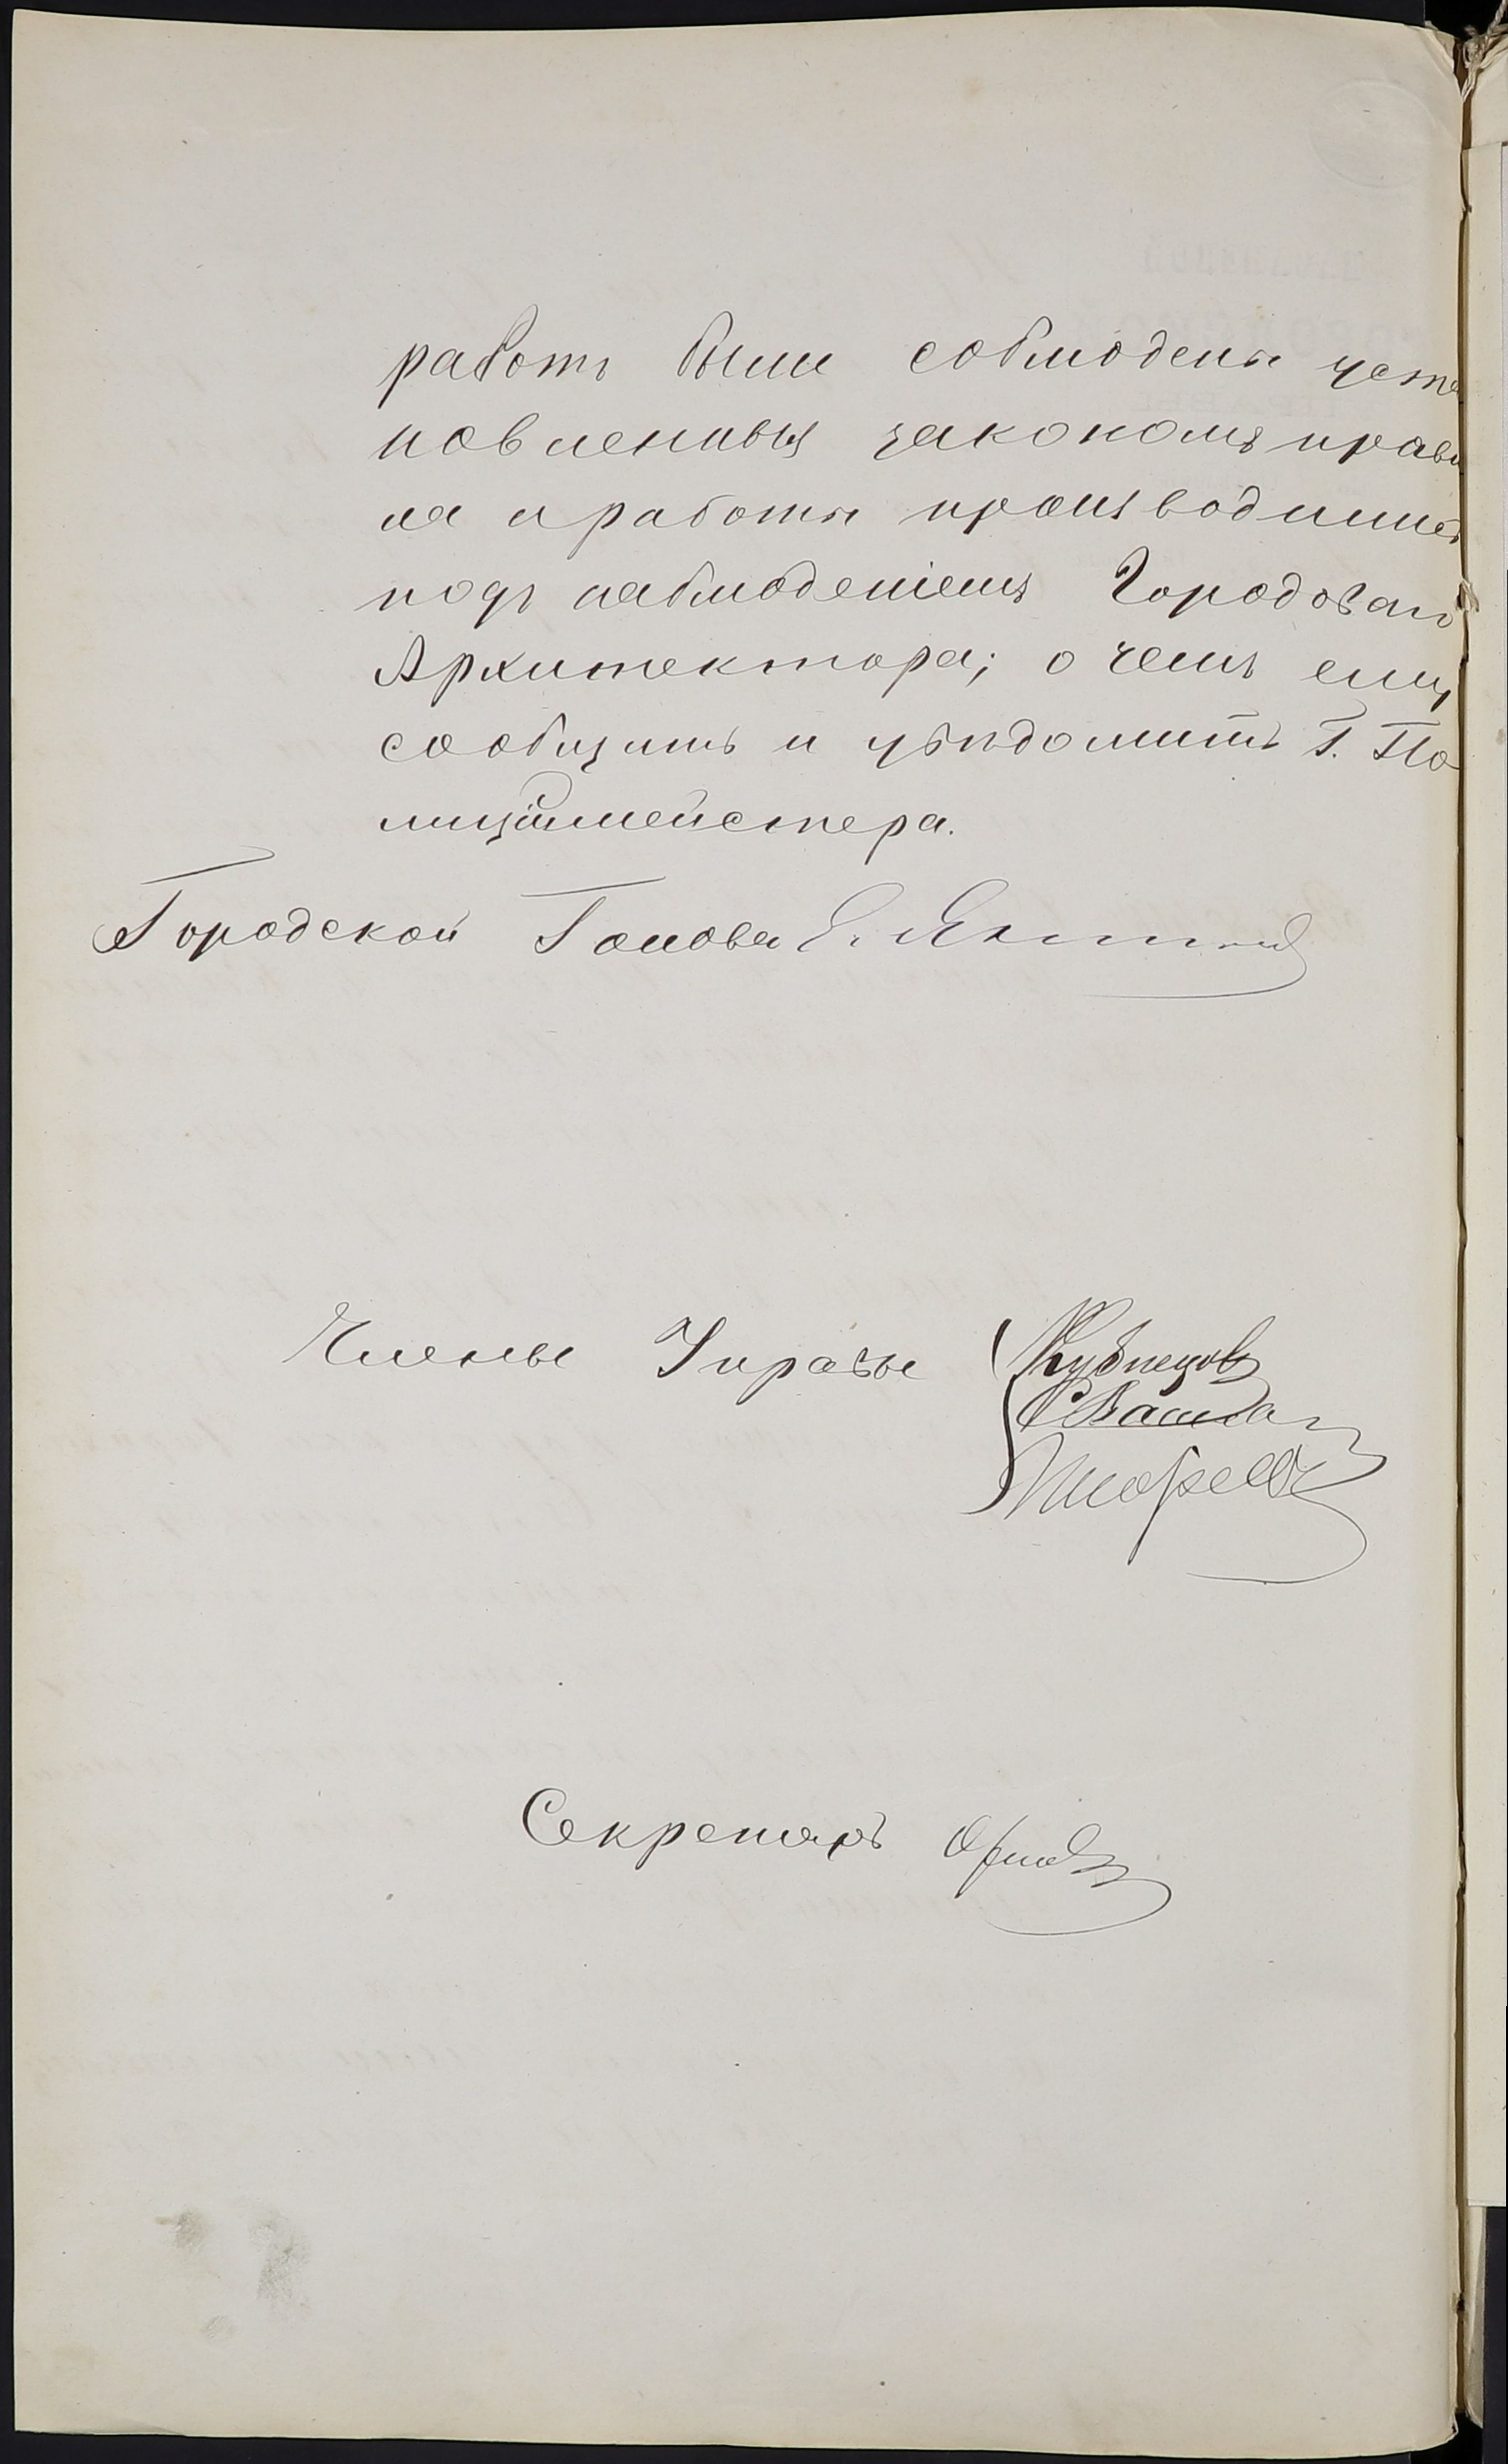 работъ были соблюдены уста
новленныя закономъ прави
ла и работы производились
подъ наблюденіемъ Городоваго
Архитектора; о чемъ ему
сообщить и увѣдомить Г. По
лиціймейстера.
Городской Голова Е.
Члены Управы Кузнецовъ
Секретарь Орловъ